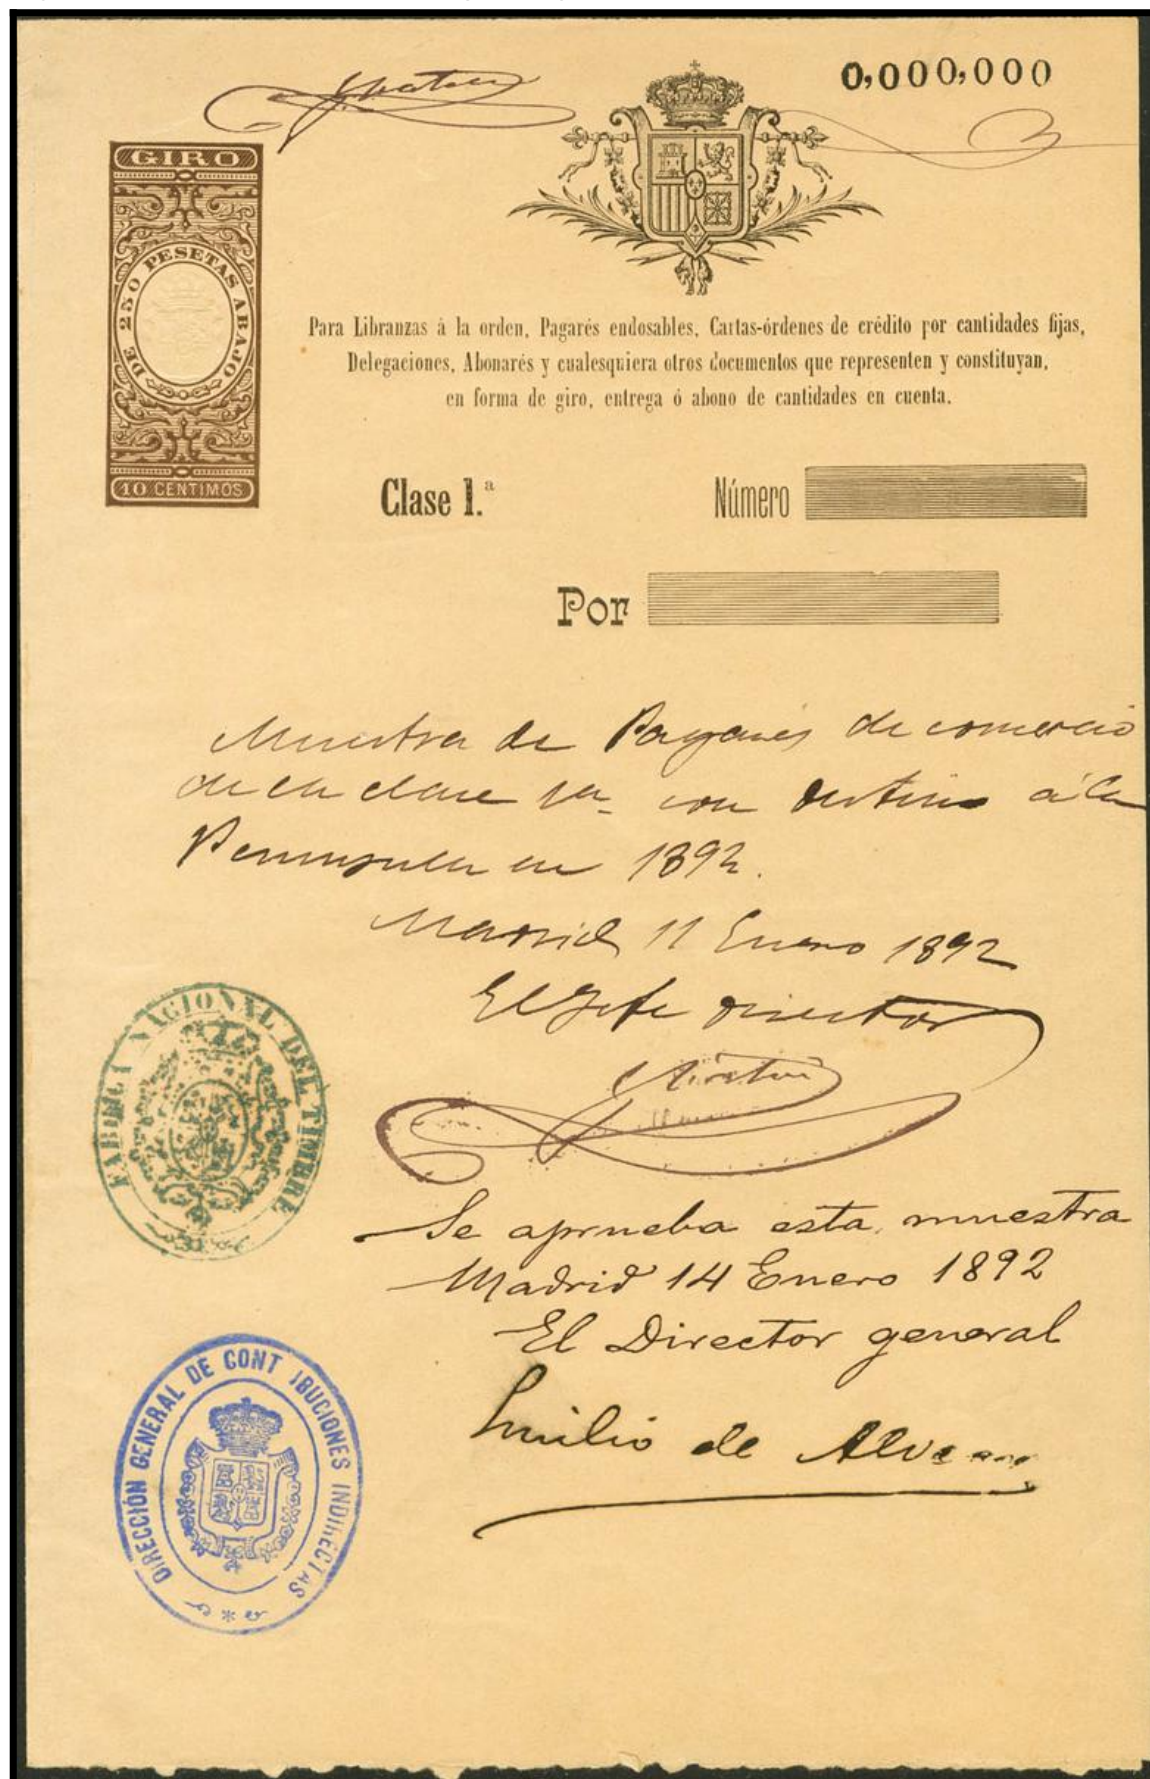 0,000,000
GIRO
DE 250 PESETAS ABAJO
10 CENTIMOS
Para Libranzas á la orden, Pagarés endosables, Cartas-órdenes de crédito por cantidades fijas,
Delegaciones, Abonarés y cualesquiera otros documentos que representen y constituyan,
en forma de giro, entrega ó abono de cantidades en cuenta.
Clase 1.ª
Número
Por
Muestra de Pagarés de comercio
de la clase 1ª con destino á la
Peninsula en 1892.
Madrid 11 Enero 1892
El Jefe director
FABRICA NACIONAL DEL TIMBRE
Se aprueba esta muestra
Madrid 14 Enero 1892
El Director general
Emilio de
DIRECCIÓN GENERAL DE CONT IBUCIONES INDIRECTAS